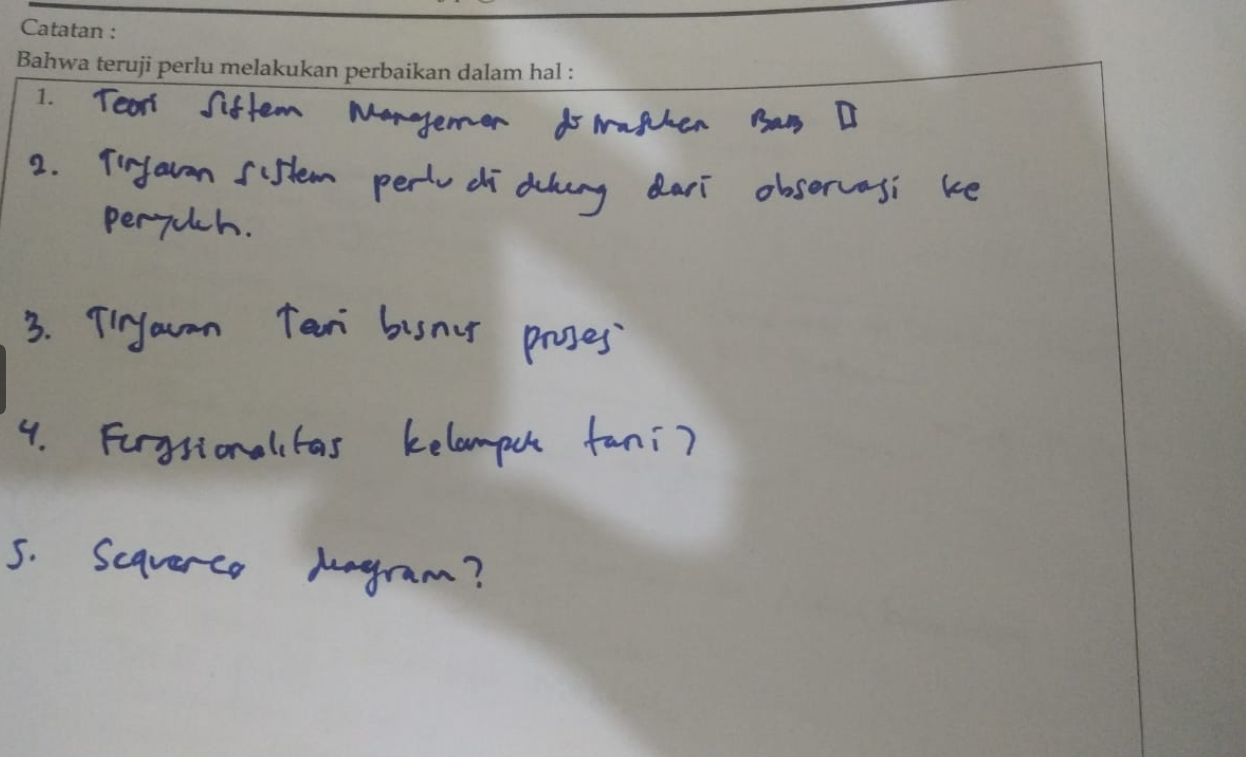 Catatan :
Bahwa teruji perlu melakukan perbaikan dalam hal :
1. Teori Sistem Manajemen di masukkan Bab II
2. Tinjauan sistem perlu di dukung dari observasi ke
penyuluh.
3. Tinjauan Teori bisnis proses
4. Fungsionalitas kelompok tani?
5. Sequence diagram?